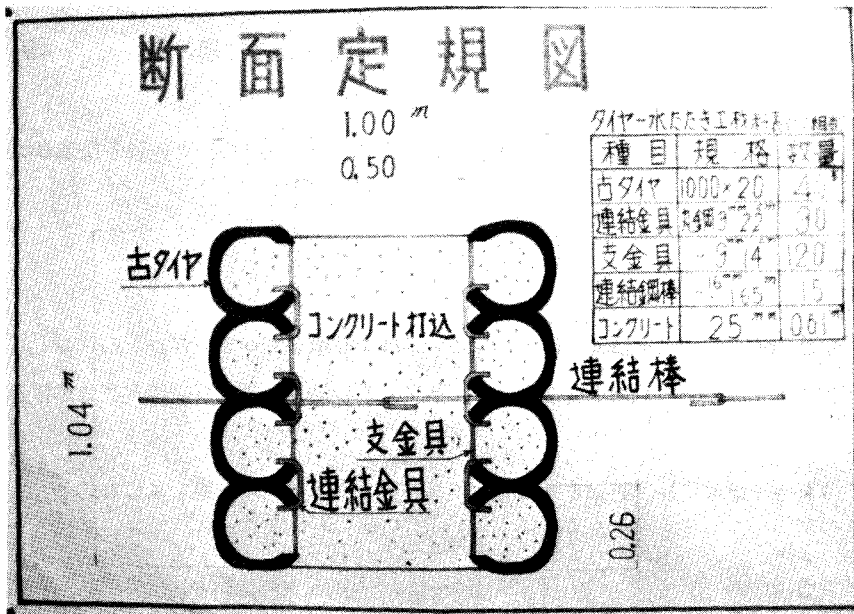 断面定規図
1.00 m
0.50
タイヤー水たたき工
種目 規格 数量
古タイヤ 1000×20 4
連結金具 22 30
支金具 9 14 120
連結鋼棒 16 165 15
コンクリート 25
古タイヤ
コンクリート打込
連結棒
1.04 m
支金具
連結金具
0.26